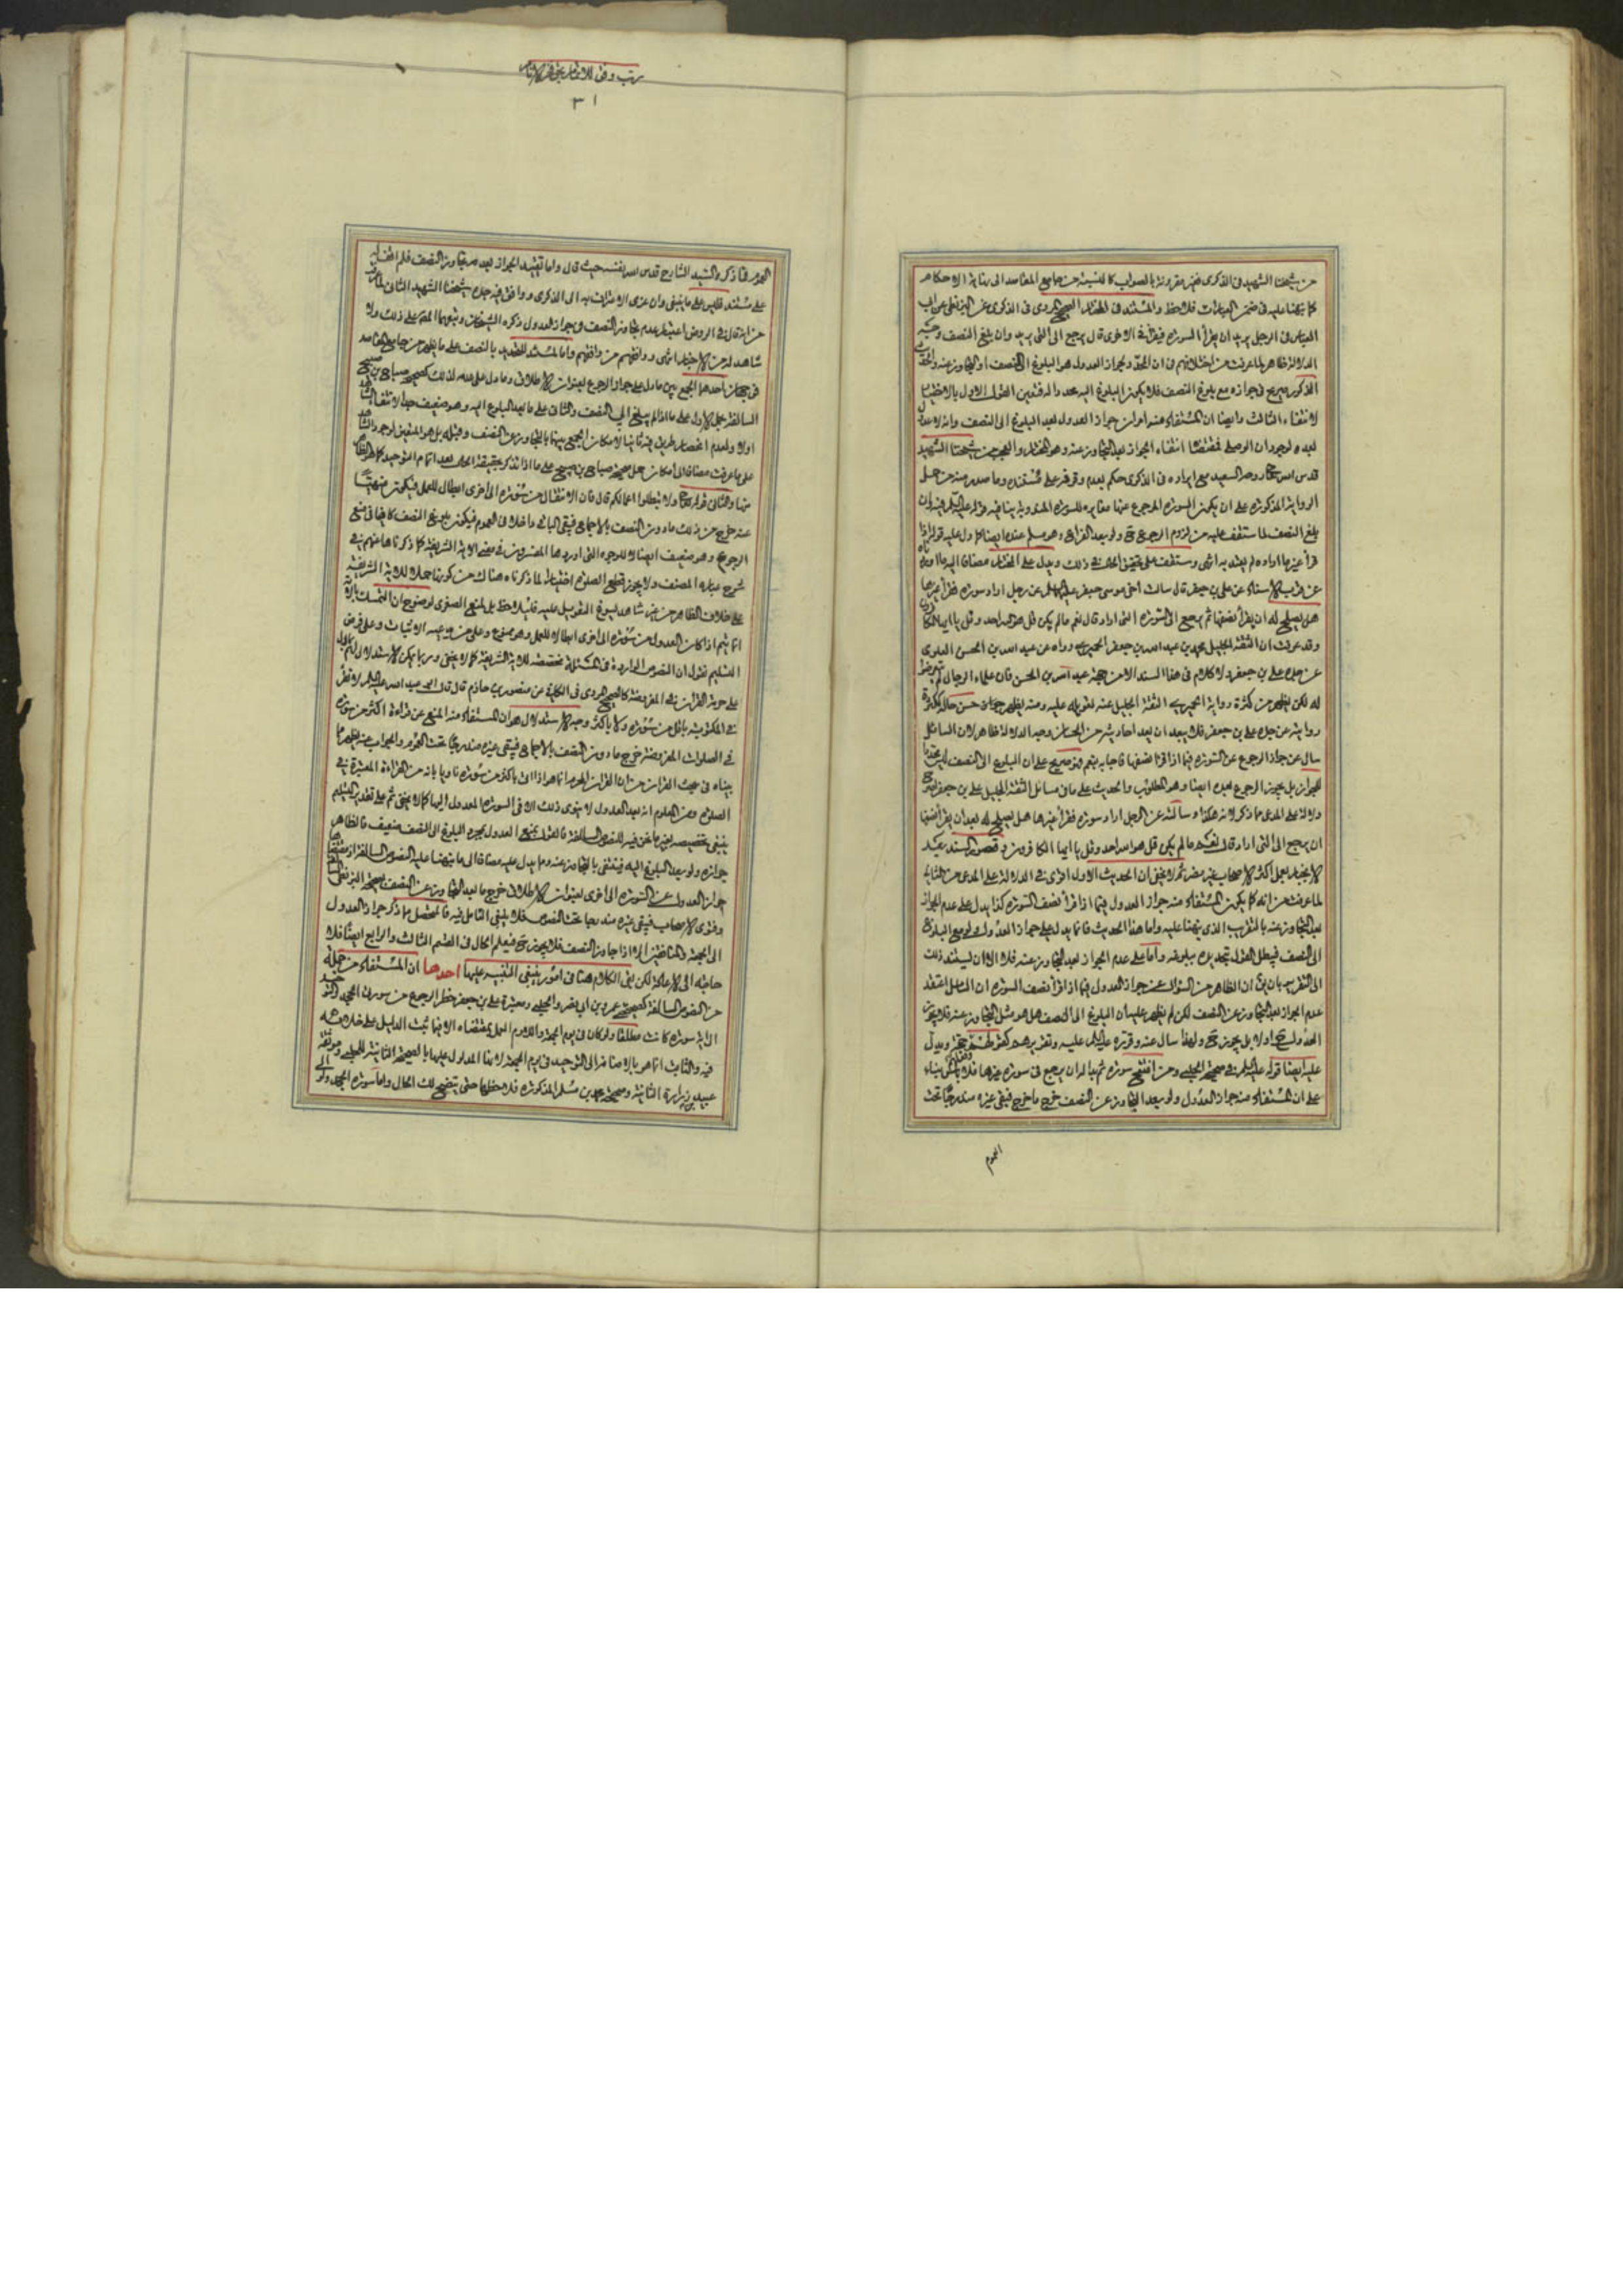 من شيخنا الشهيد في الذكرى فغير مقرونة بالصواب كالنسبة من جامع المقاصد الى نهاية الاحكام
كما نبهنا عليه في ضمن العبارات فلاحظ والمستند في المختار الصحيح المروي في الذكرى عن البزنطي عن ابي
العباس في الرجل يريد ان يقرأ السورة فيقرأ في الاخرى قال يرجع الى التي يريد وان بلغ النصف وجه
الدلالة ظاهر لما عرفت من اختلافهم في ان الحد في جواز العدول هو البلوغ الى النصف او التجاوز عنه والحديث
المذكور صريح في جوازه مع بلوغ النصف فلا يكون البلوغ اليه حدا له فتعين القول الاول بالاختيار
لانتفاء الثالث وايضا ان المستفاد منه اولوية جواز العدول بعد البلوغ الى النصف وانه لا عدول
بعده لوجود ان الوصلية فمقتضاه انتفاء الجواز بعد التجاوز عنه وهو المختار والعجب من شيخنا الشهيد
قدس الله تعالى روحه السعيد مع ايراده في الذكرى حكم بعدم وقوفه على مستنده وما صدر منه من حمل
الرواية المذكورة على ان يكون السورة المرجوع عنها مغايره للسورة المنوية ينافيه قوله عليه السلام فيه وان
بلغ النصف لما ستقف عليه من لزوم الرجوع ح ولو بعد الفراغ وهو مسلم عنده ايضا كما دل عليه قوله اذا
قرأ غيرها اراده لم يعتد به انتهى وستقف على تحقيق الحال في ذلك ويدل على المختار مضافا اليه ما اورده
عن قرب الاسناد عن علي بن جعفر قال سالت اخي موسى بن جعفر عليهما السلام عن رجل اراد سورة فقرأ غيرها
هل يصلح له ان يقرأ نصفها ثم يرجع الى السورة التي اراد قال نعم ما لم يكن قل هو الله احد وقل يا ايها الكافرون
وقد عرفت ان الثقة الجليل محمد بن عبد الله بن جعفر الحميري رواه عن عبد الله بن الحسن العلوي
عن جده علي بن جعفر ولا كلام في هذا السند الا من جهة عبد الله بن الحسن فان علماء الرجال لم يتعرضوا
له لكن يظهر من كثرة رواية الحميري الثقة الجليل عنه تعويله عليه ومنه يظهر حسن حاله لكثرة
روايته عن جده علي بن جعفر فلا يبعد ان يعد احاديثه من الحسان وجه الدلالة ظاهر لان السائل
سال عن جواز الرجوع عن السورة فيما اذا قرأ نصفها فاجابه بنعم فهو صريح على ان البلوغ الى النصف ليس حدا
للجواز بل يجوز الرجوع بعده ايضا وهو المطلوب والحديث على ما في مسائل الثقة الجليل علي بن جعفر
دلالة على المدعى مما ذكر لانه هكذا وسالته عن الرجل اراد سورة فقرأ غيرها هل يصلح له بعد ان يقرأ نصفها
ان يرجع الى التي اراد قال نعم ما لم يكن قل هو الله احد وقل يا ايها الكافرون وقصور السند بعد
الانجبار بعمل اكثر الاصحاب غير مضر ثم لا يخفى ان الحديث الاول اقوى في الدلالة على المدعى من الثاني
لما عرفت من انه كما يكون المستفاد منه جواز العدول فيما اذا قرأ نصف السورة كذا يدل على عدم الجواز
بعد التجاوز عنه بالتقريب الذي نبهنا عليه واما هذا الحديث فانما يدل على جواز العدول ولو مع البلوغ
الى النصف فيبطل القول بتحديده ببلوغه واما على عدم الجواز بعد التجاوز عنه فلا الا ان يستند ذلك
الى التقرير بان يق ان الظاهر من السؤال عن جواز العدول فيما اذا قرأ نصف السورة ان السائل اعتقد
عدم الجواز بعد التجاوز عن النصف لكن لم يظهر عليه ان البلوغ الى النصف هل هو مثل التجاوز عنه فلا يجوز
العدول ح اولا بل يجوز ح ولهذا سال عنه وقرره عليه السلام عليه وتقريره كقوله حجة ويدل
عليه ايضا قوله عليه السلام في صحيحة الحلبي ومن افتتح سورة ثم بدا له ان يرجع في سورة غيرها فلا باس بناء
على ان المستفاد منه جواز العدول ولو بعد التجاوز عن النصف خرج ما خرج فبقي غيره مندرجا تحت
العموم
العموم فما ذكره السيد الشارح قدس الله نفسه حيث قال واما تقييد الجواز بعدم تجاوز النصف فلم اقف
على مستند فليس على ما ينبغي وان عزى الاعتراف به الى الذكرى ووافق فيه جده شيخنا الشهيد الثاني
من انه قال في الروض اعتبار عدم تجاوز النصف في جواز العدول ذكره الشيخان وتبعهما المص على ذلك ولا
شاهد له من الاخبار انتهى ووافقهم من وافقهم واما المستند للتحديد بالنصف على ما يظهر من جامع المقاصد
في جهان احدهما الجمع بين ما دل على جواز الرجوع بعنوان الاطلاق وما دل على عدمه كذلك كصحيحة صباح بن صبيح
السالفة بحمل الاول على ما اذا لم يبلغ الى النصف والثاني على ما بعد البلوغ اليه وهو ضعيف جدا لانتفاء الشاهد
اولا ولعدم انحصار طريق فيه ثانيا لامكان الجمع بينهما بالتجاوز عن النصف وقبله بل هو المتعين لوجود الشاهد
على ما عرفت مضافا الى امكان حمل صحيحة صباح بن صبيح على ما اذا تذكر بحقيقة الحال بعد اتمام التوحيد كما هو الظاهر
منها والثاني قوله تعالى ولا تبطلوا اعمالكم قال فان الانتقال من سورة الى اخرى ابطال للعمل فيكون منهيا
عنه خرج من ذلك ما دون النصف بالاجماع فبقي الباقي داخلا في العموم فيكون بلوغ النصف كافيا في منع
الرجوع وهو ضعيف ايضا للوجوه التي اوردها المفسرون في معنى الاية الشريفة كما ذكرناها عنهم في
شرح عبارة المصنف ولا يجوز قطع الصلوة اختيارا لما ذكرناه هناك من كون حملا للاية الشريفة
على خلاف الظاهر من غير شاهد يسوغ التعويل عليه فليلاحظ بل لمنع الصغرى لوضوح ان التمسك بالاية
انما يتم اذا كان العدول من سورة الى اخرى ابطالا للعمل وهو ممنوع وعلى مدعيه الاثبات وعلى فرض
التسليم نقول ان النصوص الواردة في المسئلة مخصصة للاية الشريفة كما لا يخفى وربما يمكن الاستدلال
على حرمة القران في المفروضة كالصحيح المروي في الكافي عن منصور بن حازم قال قال ابو عبد الله عليه السلام لا تقرأ
في المكتوبة باقل من سورة ولا باكثر وجه الاستدلال هو ان المستفاد منه المنع عن قراءة اكثر من سورة
في الصلوات المفروضة خرج ما دون النصف بالاجماع فبقي غيره مندرجا تحت العموم والجواب عنه يظهر مما
بيناه في بحث القران من ان القران المحرم انما هو اذا اتى باكثر من سورة ناويا بانه من القراءة المعتبرة في
الصلوة ومن المعلوم انه بعد العدول لا ينوى ذلك الا في السورة المعدول اليها كما لا يخفى ثم على تقدير التسليم
ينبغي تخصيصه بغير ما نحن فيه للنصوص السالفة فالقول بمنع العدول بمجرد البلوغ الى النصف ضعيف فالظاهر
جوازه ولو بعد البلوغ اليه فينتفي بالتجاوز عنه ومما يدل عليه مضافا الى ما نبهنا عليه النصوص السالفة اذ مقتضاها
جواز العدول عن السورة الى اخرى بعنوان الاطلاق خرج ما بعد التجاوز عن النصف بصحيحة البزنطي
وفتوى الاصحاب فبقي غيره مندرجا تحت النصوص فلا ينبغي التامل فيه فالمحصل مما ذكر جواز العدول
الى الجمعة والمنافقين الا اذا جاوز النصف فلا يجوز ح فيعلم الحال في القسم الثالث والرابع ايضا فلا
حاجة الى الاعادة لكن بقي الكلام هنا في امور ينبغي التنبيه عليها احدها ان المستفاد من جملة
من النصوص السالفة كصحيحة عمرو بن ابي نصر والحلبي ومعتبرة علي بن جعفر حظر الرجوع من سورتي الجحد والتوحيد
الى اية سورة كانت مطلقا ولو كان في يوم الجمعة واللازم العمل بمقتضاه الا فيما ثبت الدليل على خلافه
فيه والثابت انما هو بالاضافة الى التوحيد في يوم الجمعة لانها المدلول عليها بالصحيحة الثانية للحلبي وموثقة
عبيد بن زرارة الثانية وصحيحة محمد بن مسلم المذكورة فلاحظها حتى يتضح لك الحال واما سورة الجحد
٣١